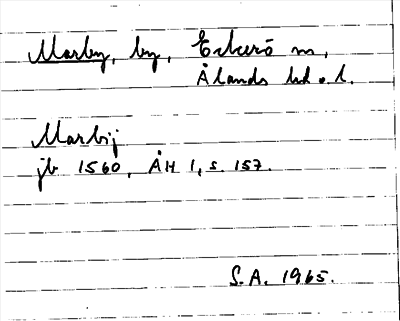 Marby, by, Eckerö sn,
Ålands hd o. l.
Marbij
jb 1560, ÅH 1, s. 157.
S.A. 1965.